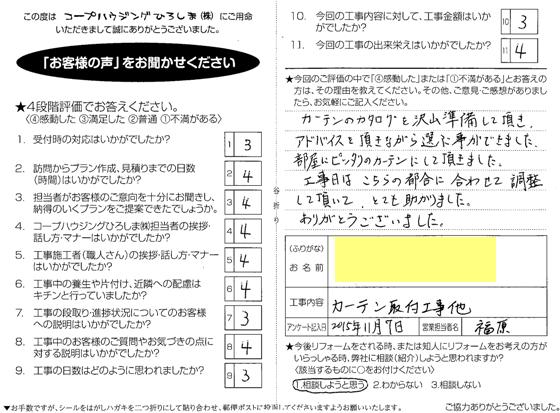 この度は コープハウジングひろしま(株) にご用命
いただきまして誠にありがとうございました。
「お客様の声」をお聞かせください
★4段階評価でお答えください。
〈④感動した ③満足した ②普通 ①不満がある〉
1. 受付時の対応はいかがでしたか?
1 3
2. 訪問からプラン作成、見積りまでの日数
(時間)はいかがでしたか?
2 4
3. 担当者がお客様のご意向を十分にお聞きし、
納得のいくプランをご提案できたでしょうか。
3 4
4. コープハウジングひろしま㈱担当者の挨拶・
話し方・マナーはいかがでしたか?
4 4
5. 工事施工者(職人さん)の挨拶・話し方・マナー
はいかがでしたか?
5 4
6. 工事中の養生や片付け、近隣への配慮は
キチンと行っていましたか?
6 4
7. 工事の段取り・進捗状況についてのお客様
への説明はいかがでしたか?
7 3
8. 工事中のお客様のご質問やお気づきの点に
対する説明はいかがでしたか?
8 4
9. 工事の日数はどのように思われましたか?
9 3
▼お手数ですが、シールをはがしハガキを二つ折りにして貼り合わせ、郵便ポストに投函してくださいますようお願いいたします。
谷折り
10. 今回の工事内容に対して、工事金額はいか
がでしたか?
10 3
11. 今回の工事の出来栄えはいかがでしたか?
11 4
★今回のご評価の中で「④感動した」または「①不満がある」とお答えの
方は、その理由を教えてください。その他、ご意見・ご感想がありまし
たら、お気軽にご記入ください。
カーテンのカタログを沢山準備して頂き
アドバイスを頂きながら選ぶ事ができました。
部屋にピッタリのカーテンにして頂きました。
工事日は こちらの都合に合わせて調整
して頂いて、とても助かりました。
ありがとうございました。
(ふりがな)
お名前
工事内容 カーテン取付工事他
アンケート記入日 2015年11月7日 営業担当者名 福原
★今後リフォームをされる時、または知人にリフォームをお考えの方が
いらっしゃる時、弊社に相談(紹介)しようと思われますか?
〈該当するものに○をお付けください〉
1.相談しようと思う 2.わからない 3.相談しない
ご協力ありがとうございました。